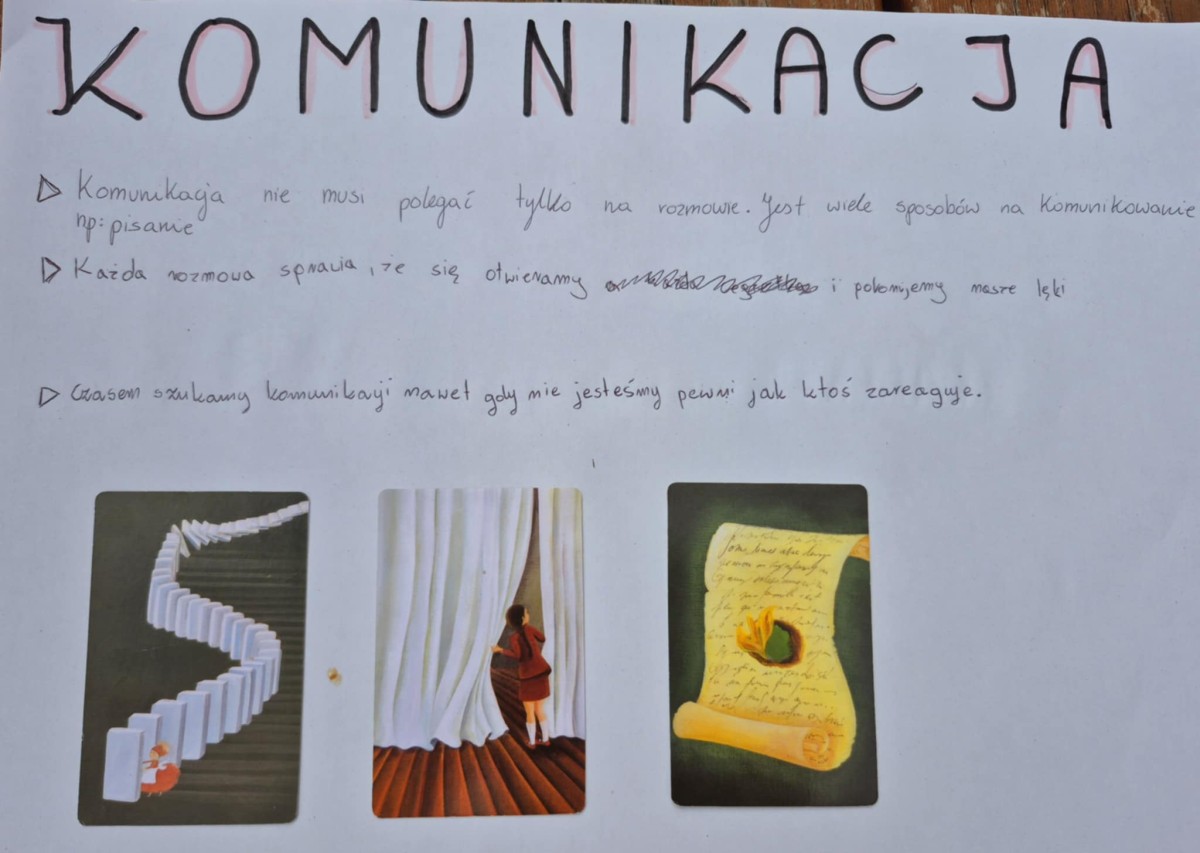 KOMUNIKACJA
Komunikacja nie musi polegać tylko na rozmowie. Jest wiele sposobów na komunikowanie
np: pisanie
Każda rozmowa sprawia, że się otwieramy i pokonujemy nasze lęki
Czasem szukamy komunikacji nawet gdy nie jesteśmy pewni jak ktoś zareaguje.